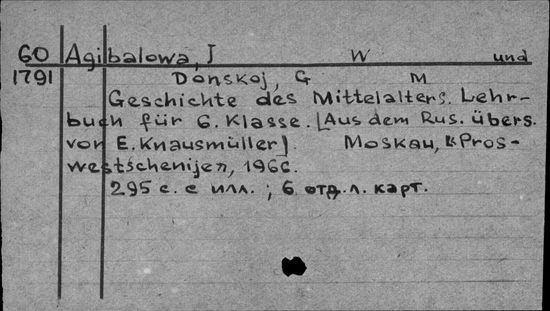 60 Agibalowa, J W und
1791 Donskoj, G M
Geschichte des Mittelalters. Lehr-
buch für 6. Klasse. [Aus dem Rus. übers.
von E. Knausmüller]. Moskau, "Pros-
westschenije", 1966.
295 с. с илл. ; 6 отд. л. карт.